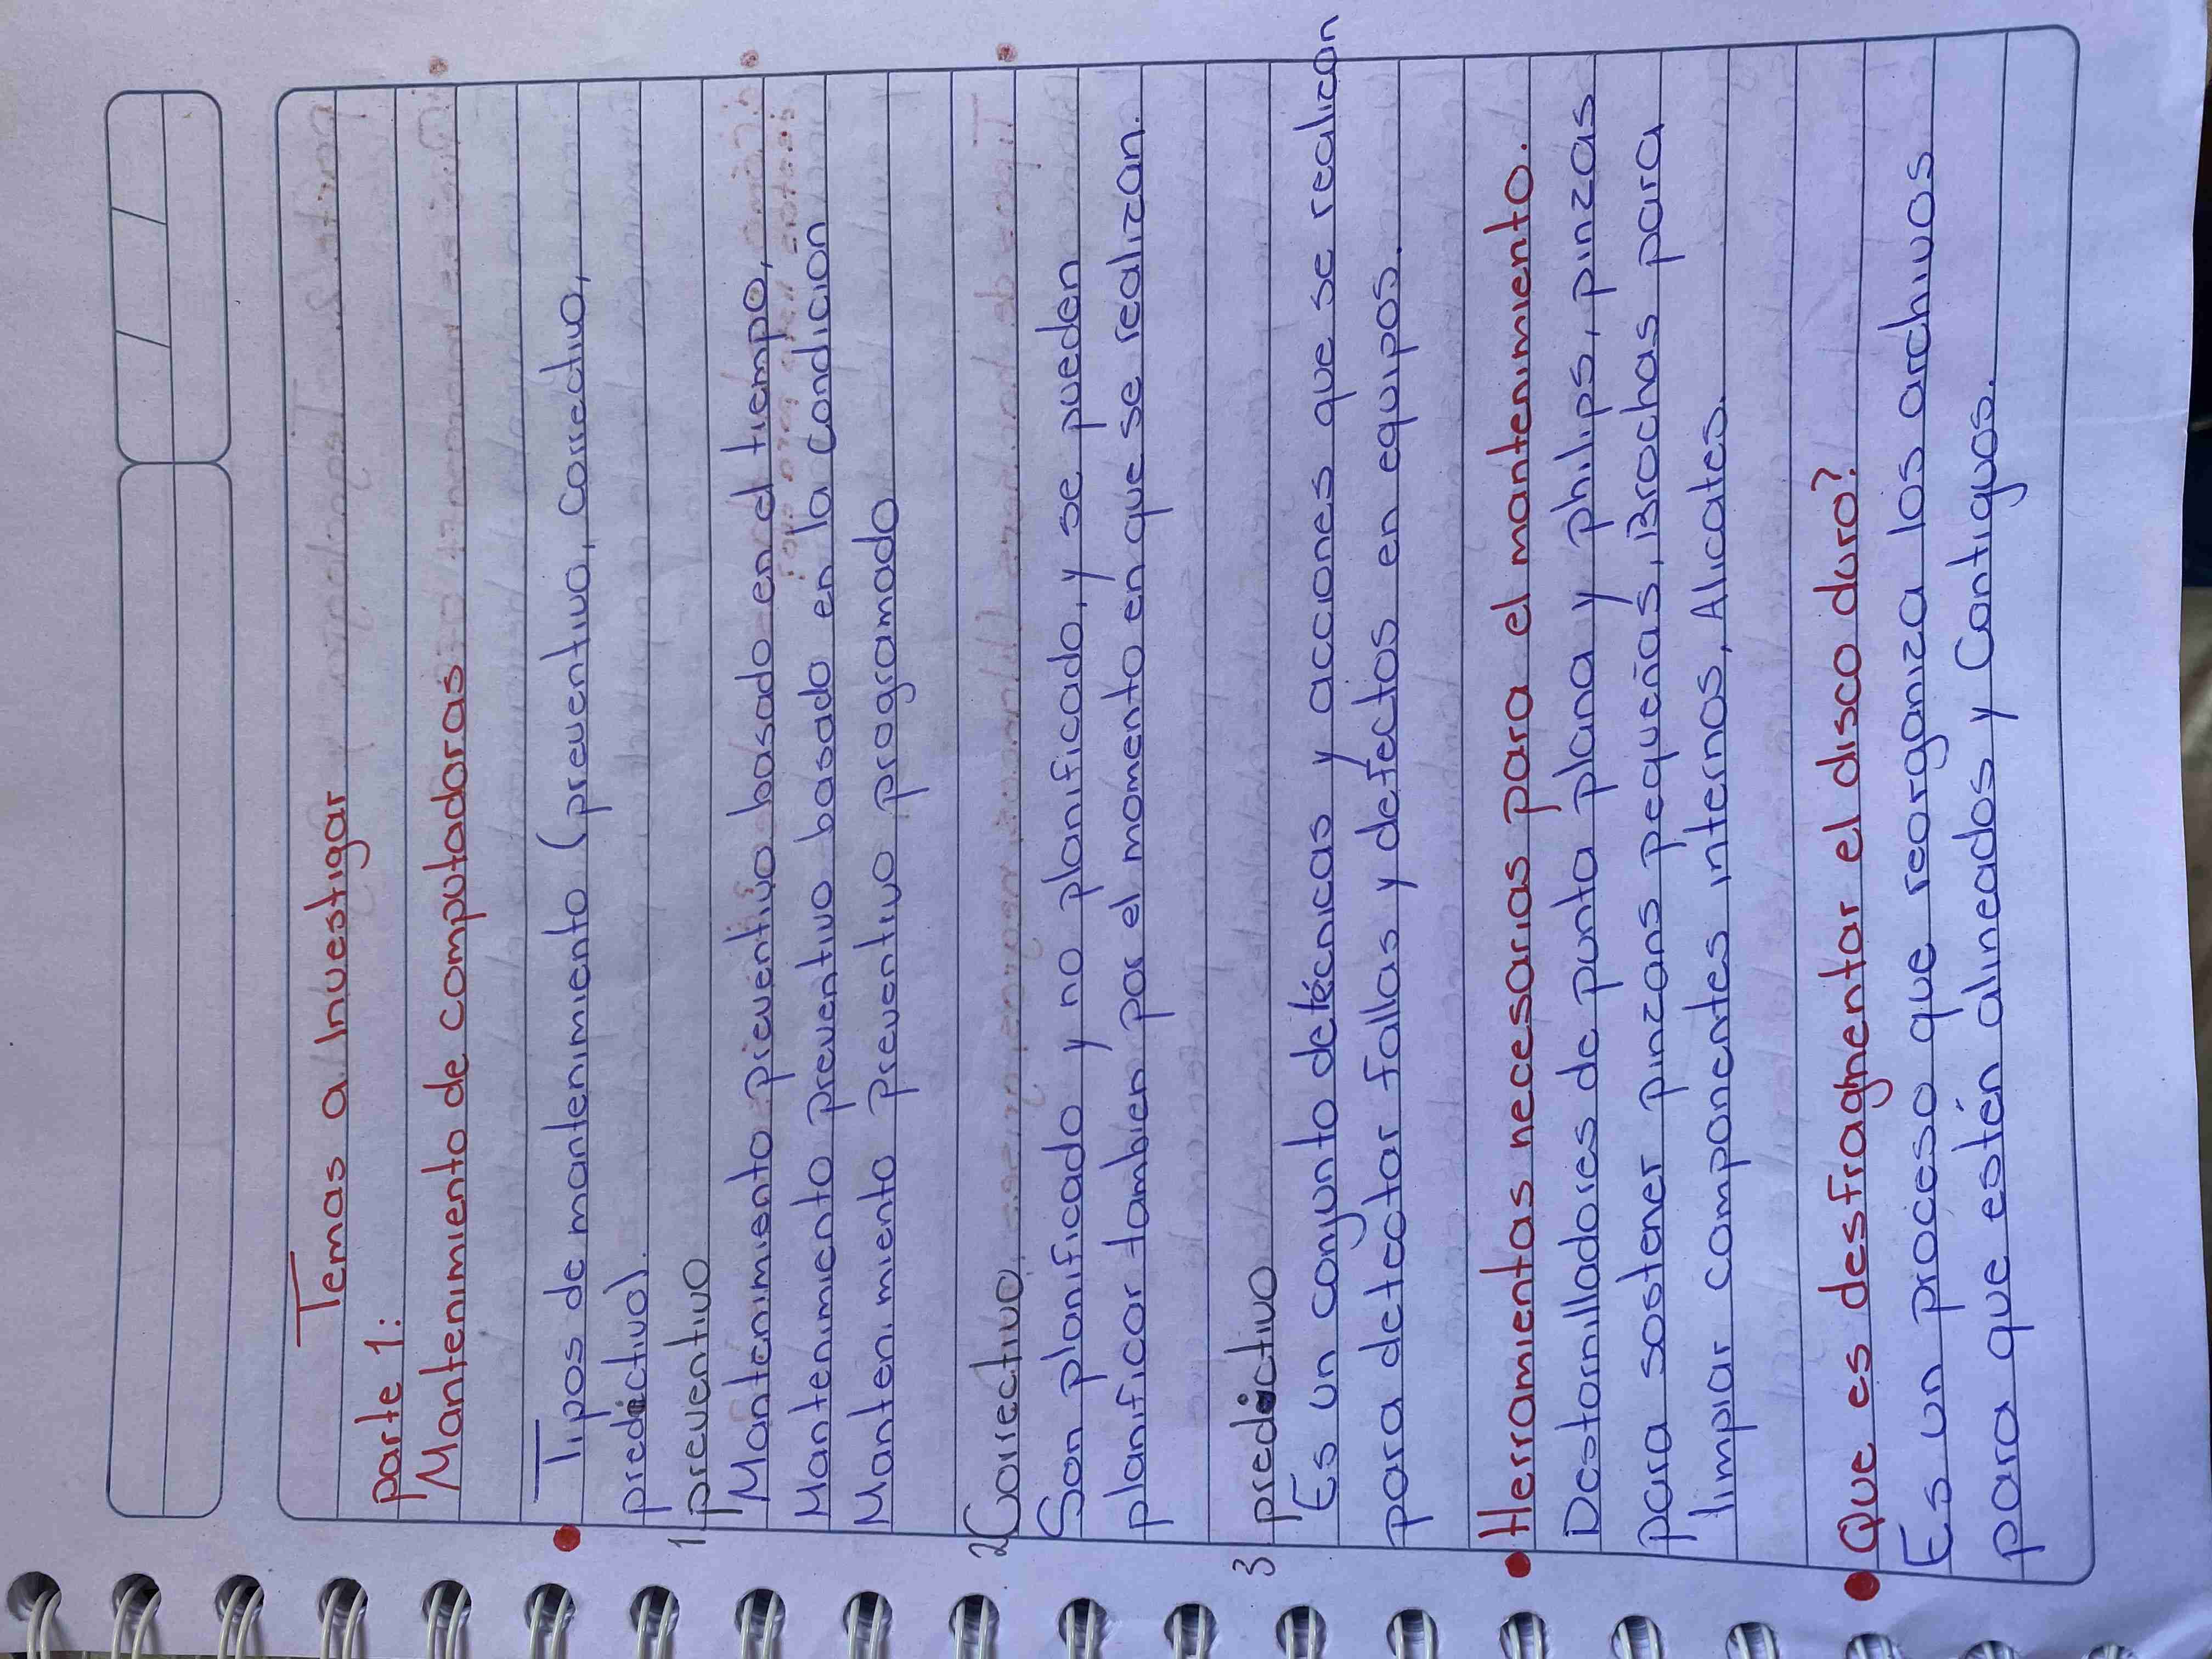 Temas a Investigar
parte 1:
Mantenimiento de computadoras
Tipos de mantenimiento (preventivo, correctivo,
predictivo).
1 preventivo
Mantenimiento preventivo basado en el tiempo,
Mantenimiento preventivo basado en la condicion
Mantenimiento preventivo programado
2 Correctivo
Son planificado y no planificado, y se pueden
planificar tambien por el momento en que se realizan.
3 predictivo
Es un conjunto de técnicas y acciones que se realizan
para detectar fallas y defectos en equipos.
• Herramientas necesarias para el mantenimiento.
Destornilladores de punta plana y philips, pinzas
para sostener pinzans pequeñas, Brochas para
limpiar componentes internos, Alicates.
• Que es desfragmentar el disco duro?
Es un proceso que reorganiza los archivos
para que estén alineados y Contiguos.